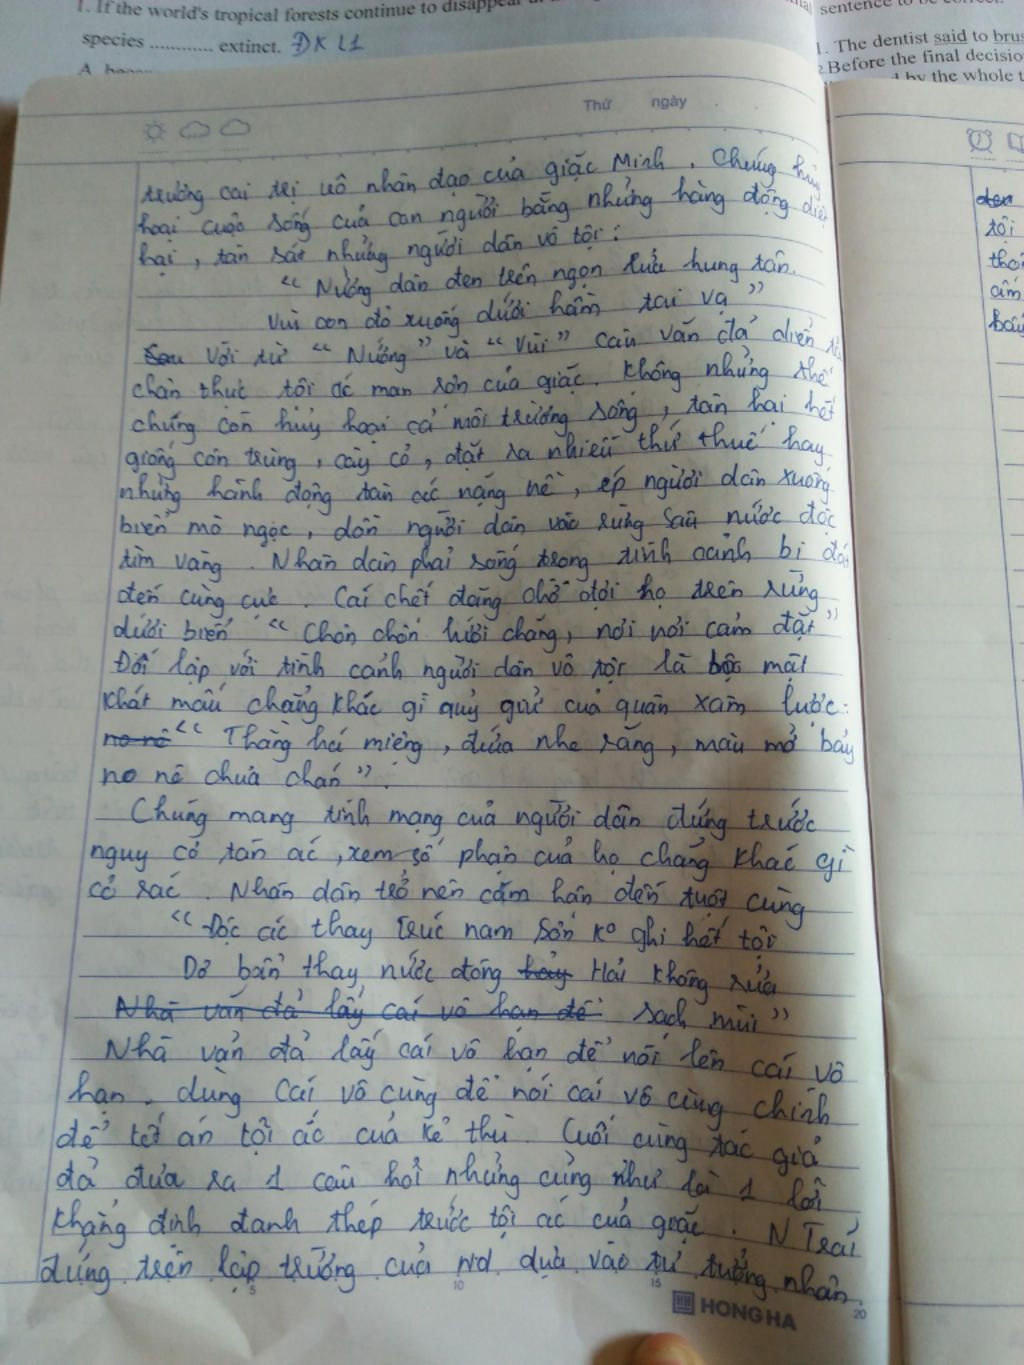 1. If the world's tropical forests continue to disappear
species ............ extinct. ĐK L1
sentence to be correct.
1. The dentist said to brus
2. Before the final decisio
by the whole t
Thứ ngày
trường cai trị vô nhân đạo của giặc Minh. Chúng hủy
hoại cuộc sống của con người bằng những hàng động diệt
hại, tàn sát những người dân vô tội:
“ Nướng dân đen trên ngọn lửa hung tàn.
Vùi con đỏ xuống dưới hầm tai vạ ”
Sau Với từ “ Nướng ” và “ Vùi ” câu văn đã diễn tả
chân thực tội ác man rợn của giặc. Không những thế
chúng còn hủy hoại cả môi trường sống, tàn hại hết
giống côn trùng, cây cỏ, đặt ra nhiều thứ thuế hay
những hành động tàn ác nặng nề, ép người dân xuống
biển mò ngọc, dồn người dân vào rừng sâu nước độc
tìm vàng. Nhân dân phải sống trong tình cảnh bi đát
đến cùng cực. Cái chết đang chờ đợi họ trên rừng
dưới biển “ Chốn chốn lưới chăng, nơi nơi cạm đặt ”
Đối lập với tình cảnh người dân vô tội là bộc mặt
khát máu chẳng khác gì quỷ giữ của quân xâm lược:
no nê “ Thằng há miệng, đứa nhe răng, máu mỡ bấy
no nê chưa chán ”.
Chúng mang tính mạng của người dân đứng trước
nguy cơ tàn ác, xem số phận của họ chẳng khác gì
cỏ rác. Nhân dân trở nên căm hận đến tuột cùng
“ Độc ác thay Trúc nam Sơn k° ghi hết tội
Dơ bẩn thay nước đông hảy Hải không rửa
Nhà văn đã lấy cái vô hạn để sạch mùi ”
Nhà văn đã lấy cái vô hạn để nói lên cái vô
hạn. dùng cái vô cùng để nói cái vô cùng chính
để kết án tội ác của kẻ thù. Cuối cùng tác giả
đã đưa ra 1 câu hỏi nhưng cũng như là 1 lời
khẳng định đanh thép trước tội ác của giặc. N Trãi
đứng trên lập trường của nd dựa vào tư tưởng nhân
5 10 15 20
HH HONG HA
đen
tội
thơ
âm
bấy